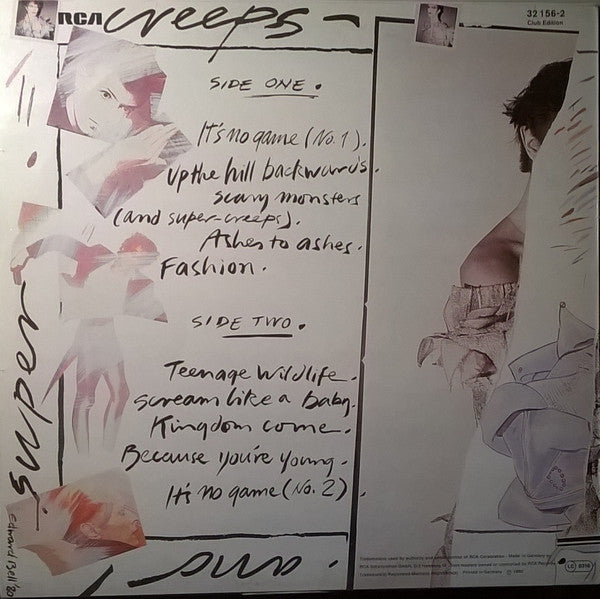 RCA
creeps -
32 156-2
Club Edition
SIDE ONE.
It's no game (No. 1).
Up the hill backwards.
scary monsters
(and super-creeps).
Ashes to ashes.
Fashion.
SIDE TWO.
Teenage Wildlife.
Scream like a baby.
Kingdom come.
Because you're young.
It's no game (No. 2).
super
and
Edward Bell '80
Trademark(s) used by authority and of RCA Corporation - Made in Germany by
RCA Schallplatten GmbH, owned or controlled by RCA Records
Trademark(s) Registered-Marca(s) Registrada(s) - Printed in Germany - © 1980
LC 0316